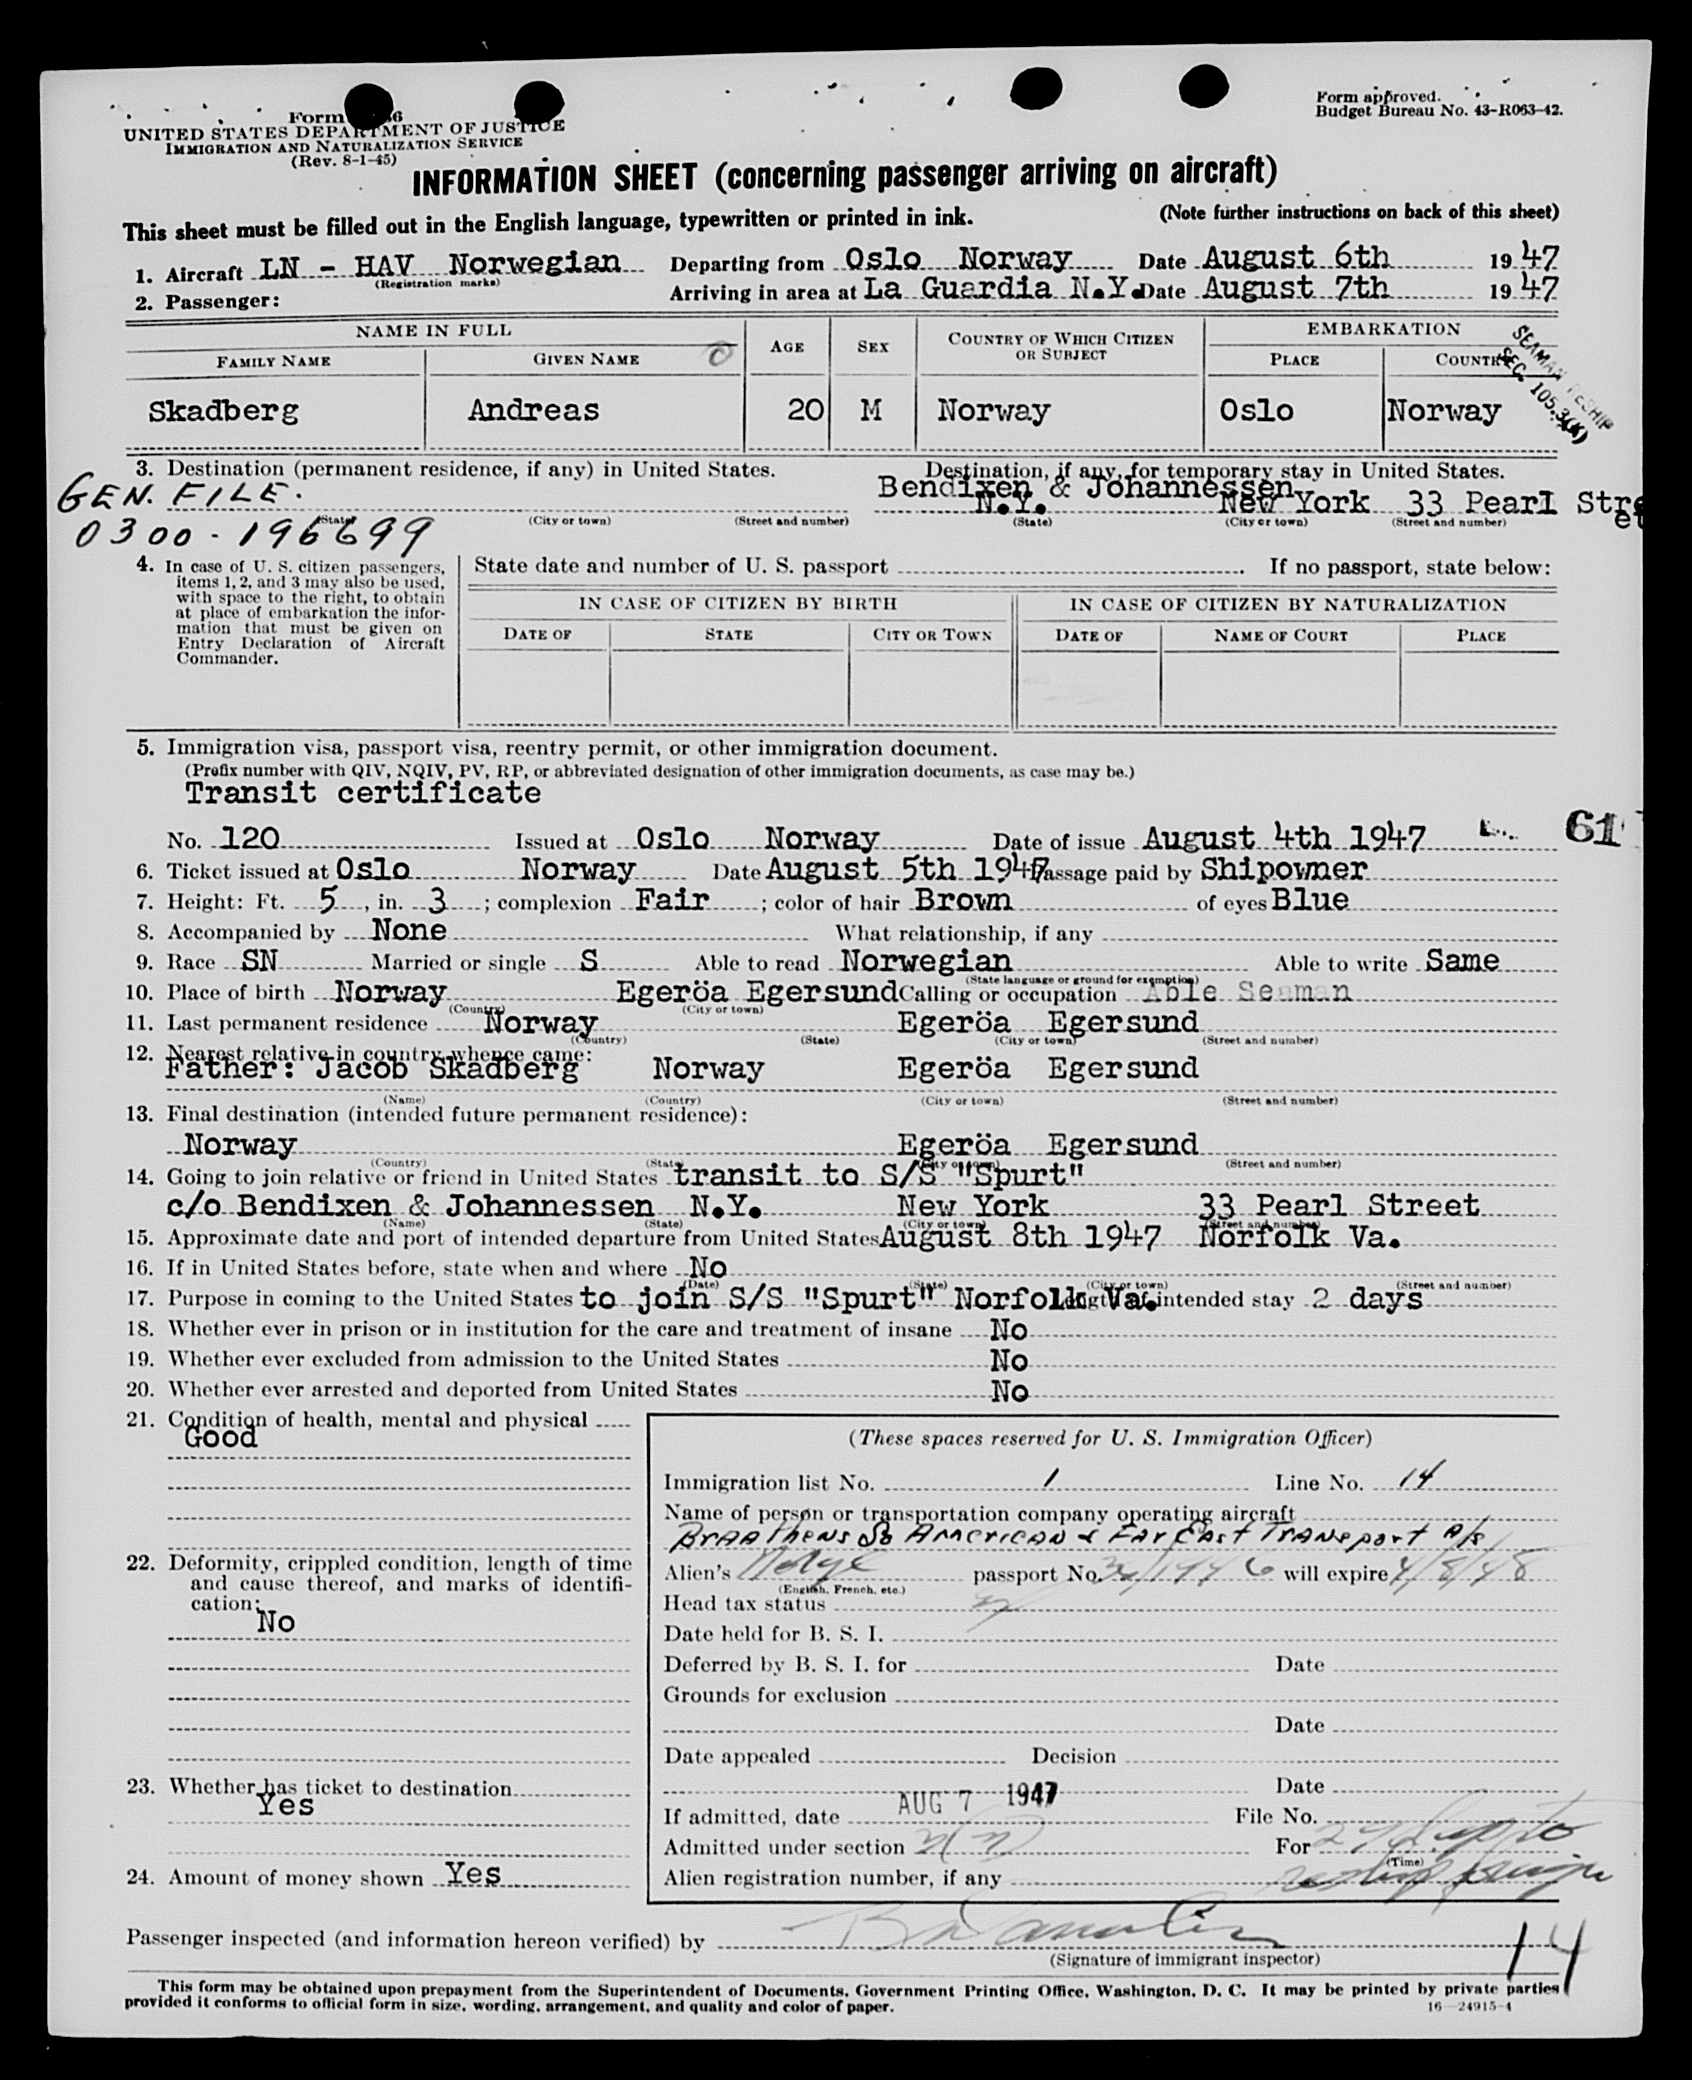 Form
UNITED STATES DEPARTMENT OF JUSTICE
IMMIGRATION AND NATURALIZATION SERVICE
(Rev. 8-1-45)
Form approved.
Budget Bureau No. 43-R063-42.
INFORMATION SHEET (concerning passenger arriving on aircraft)
This sheet must be filled out in the English language, typewritten or printed in ink.
(Note further instructions on back of this sheet)
1. Aircraft LN - HAV Norwegian Departing from Oslo Norway Date August 6th 1947
(Registration marks)
2. Passenger: Arriving in area at La Guardia N.Y. Date August 7th 1947
NAME IN FULL
EMBARKATION
FAMILY NAME GIVEN NAME AGE SEX COUNTRY OF WHICH CITIZEN OR SUBJECT PLACE COUNTRY
SEAMAN
SEC. 105.3(K)
Skadberg Andreas 20 M Norway Oslo Norway
3. Destination (permanent residence, if any) in United States. Destination, if any, for temporary stay in United States.
GEN. FILE.
Bendixen & Johannessen
N.Y. New York 33 Pearl Street
(State) (City or town) (Street and number) (State) (City or town) (Street and number)
0300-196699
4. In case of U. S. citizen passengers,
items 1, 2, and 3 may also be used,
with space to the right, to obtain
at place of embarkation the infor-
mation that must be given on
Entry Declaration of Aircraft
Commander.
State date and number of U. S. passport . If no passport, state below:
IN CASE OF CITIZEN BY BIRTH IN CASE OF CITIZEN BY NATURALIZATION
DATE OF STATE CITY OR TOWN DATE OF NAME OF COURT PLACE
5. Immigration visa, passport visa, reentry permit, or other immigration document.
(Prefix number with QIV, NQIV, PV, RP, or abbreviated designation of other immigration documents, as case may be.)
Transit certificate
No. 120 Issued at Oslo Norway Date of issue August 4th 1947
61
6. Ticket issued at Oslo Norway Date August 5th 1947 Passage paid by Shipowner
7. Height: Ft. 5, in. 3; complexion Fair; color of hair Brown of eyes Blue
8. Accompanied by None What relationship, if any
9. Race SN Married or single S Able to read Norwegian Able to write Same
(State language or ground for exemption)
10. Place of birth Norway Egeröa Egersund Calling or occupation Able Seaman
(Country) (City or town)
11. Last permanent residence Norway Egeröa Egersund
(Country) (State) (City or town) (Street and number)
12. Nearest relative in country whence came:
Father: Jacob Skadberg Norway Egeröa Egersund
(Name) (Country) (City or town) (Street and number)
13. Final destination (intended future permanent residence):
Norway Egeröa Egersund
(Country) (State) (City or town) (Street and number)
14. Going to join relative or friend in United States transit to S/S "Spurt"
c/o Bendixen & Johannessen N.Y. New York 33 Pearl Street
(Name) (State) (City or town) (Street and number)
15. Approximate date and port of intended departure from United States August 8th 1947 Norfolk Va.
16. If in United States before, state when and where No
(Date) (State) (City or town) (Street and number)
17. Purpose in coming to the United States to join S/S "Spurt" Norfolk Va. Length of intended stay 2 days
18. Whether ever in prison or in institution for the care and treatment of insane No
19. Whether ever excluded from admission to the United States No
20. Whether ever arrested and deported from United States No
21. Condition of health, mental and physical
Good
22. Deformity, crippled condition, length of time
and cause thereof, and marks of identifi-
cation:
No
23. Whether has ticket to destination
Yes
24. Amount of money shown Yes
(These spaces reserved for U. S. Immigration Officer)
Immigration list No. 1 Line No. 14
Name of person or transportation company operating aircraft
Braathens So American & Far East Transport A/S
Alien's passport No. will expire 4/8/48
(English, French, etc.)
Head tax status
Date held for B. S. I.
Deferred by B. S. I. for Date
Grounds for exclusion
Date
Date appealed Decision
Date
If admitted, date AUG 7 1947 File No.
Admitted under section For
(Time)
Alien registration number, if any
Passenger inspected (and information hereon verified) by
(Signature of immigrant inspector)
14
This form may be obtained upon prepayment from the Superintendent of Documents, Government Printing Office, Washington, D. C. It may be printed by private parties
provided it conforms to official form in size, wording, arrangement, and quality and color of paper.
16—24915-4